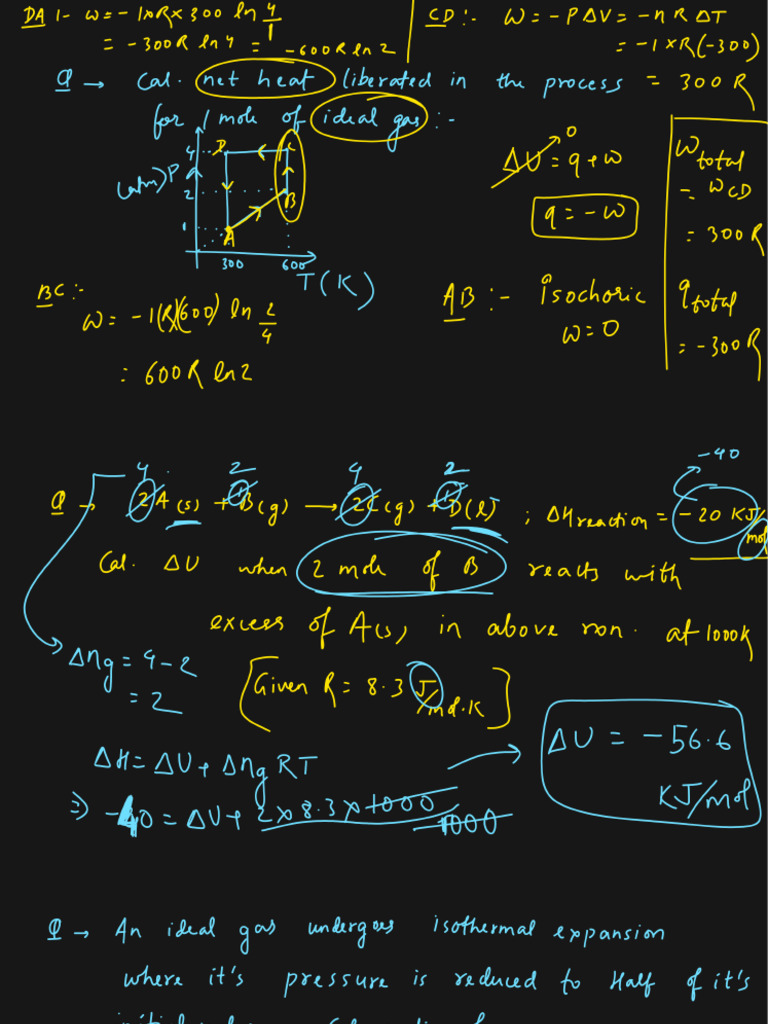 DA :- w = -1×R×300 ln 4/1
= -300R ln 4 = -600R ln 2
CD :- W = -PΔV = -nRΔT
= -1×R(-300)
= 300R
Q → Cal. net heat liberated in the process
for 1 mole of ideal gas :-
4 D C
(atm) P
2 B
1 A
300 600
T(K)
ΔU = q + w
0
q = -w
W total
= W CD
= 300R
q total
= -300R
BC :-
W = -1(R)(600) ln 2/4
= 600R ln 2
AB :- Isochoric
W = 0
4 2 4 2 -40
Q → 2A(s) + 1B(g) → 2C(g) + 1D(l) ; ΔH reaction = -20 KJ/mol
Cal. ΔU when 2 mole of B reacts with
excess of A(s) in above rxn. at 1000K
Δng = 4 - 2
= 2
[Given R = 8.3 J/mol.K]
ΔH = ΔU + Δng RT
⇒ -40 = ΔU + 2×8.3×1000/1000
ΔU = -56.6
KJ/mol
Q → An ideal gas undergoes isothermal expansion
where it's pressure is reduced to Half of it's